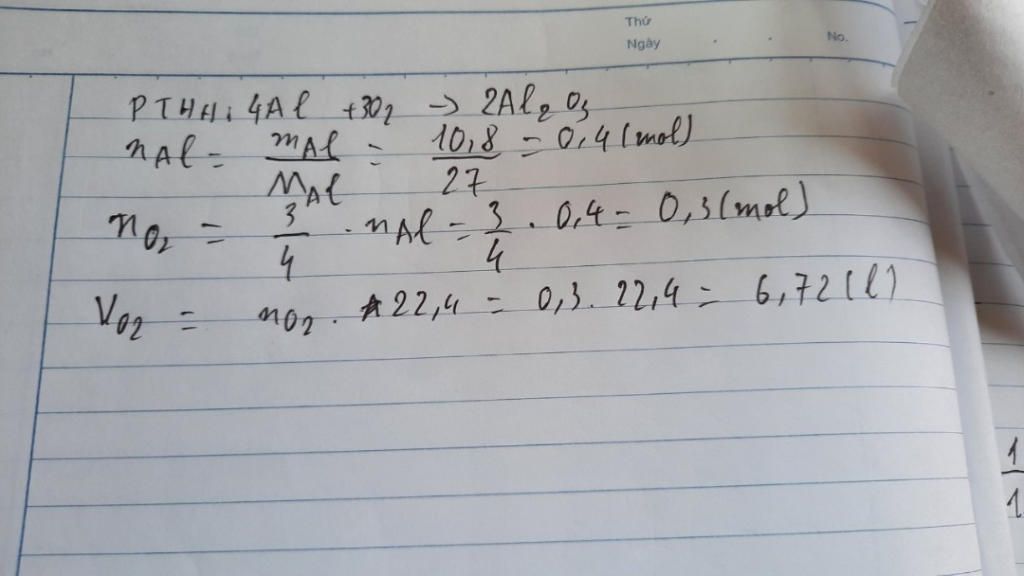 Thứ
Ngày . . No.
PTHH: 4Al + 3O₂ → 2Al₂O₃
nAl = mAl/MAl = 10,8/27 = 0,4 (mol)
nO₂ = 3/4 . nAl = 3/4 . 0,4 = 0,3 (mol)
VO₂ = nO₂ . 22,4 = 0,3 . 22,4 = 6,72 (l)
1
1